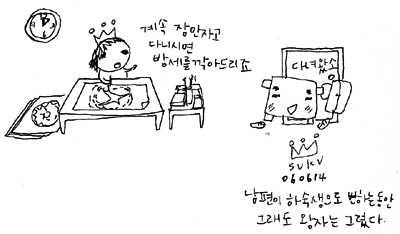 계속 잠만자고
다니시면
방세를 깍아드리죠
다녀왔소
SUKU
060614
남편이 하숙생으로 변하는동안
그래도 왕자는 그렸다.